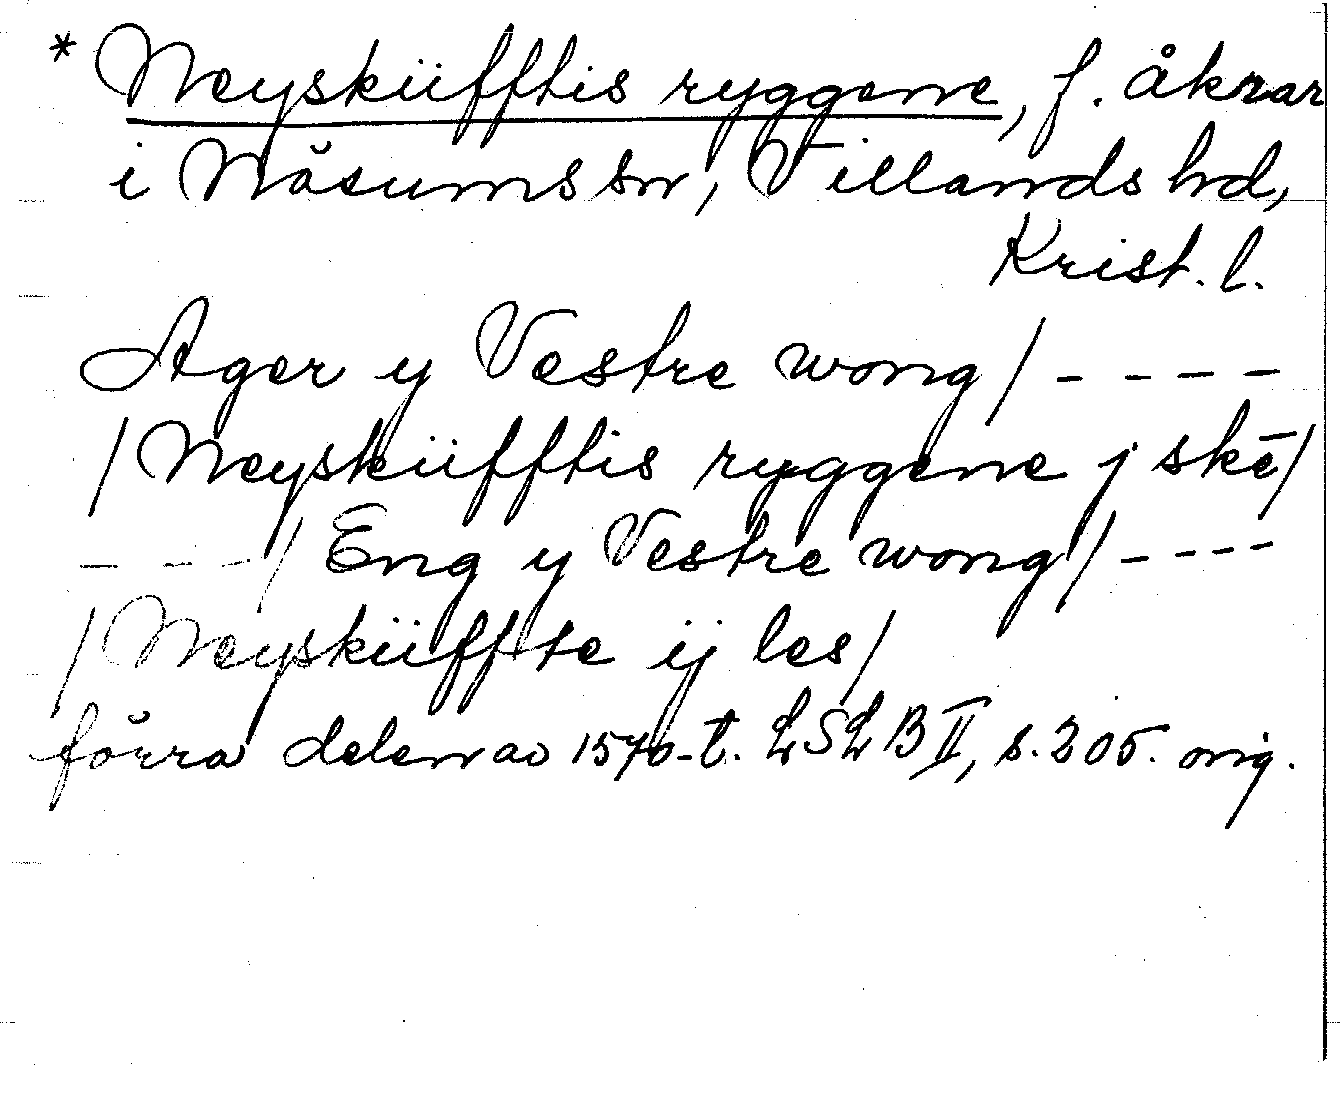 * Neyskiifftis ryggene, f. åkrar
i Näsums sn, Villands hd,
Krist. l.
Ager y Vestre wong/ - - - -
/Neyskiifftis ryggene j skē/
- - - -/ Eng y Vestre wong/ - - - -
/Neyskiiffte ij les/
förra delen av 1570-t. LSLB II, s. 205. orig.